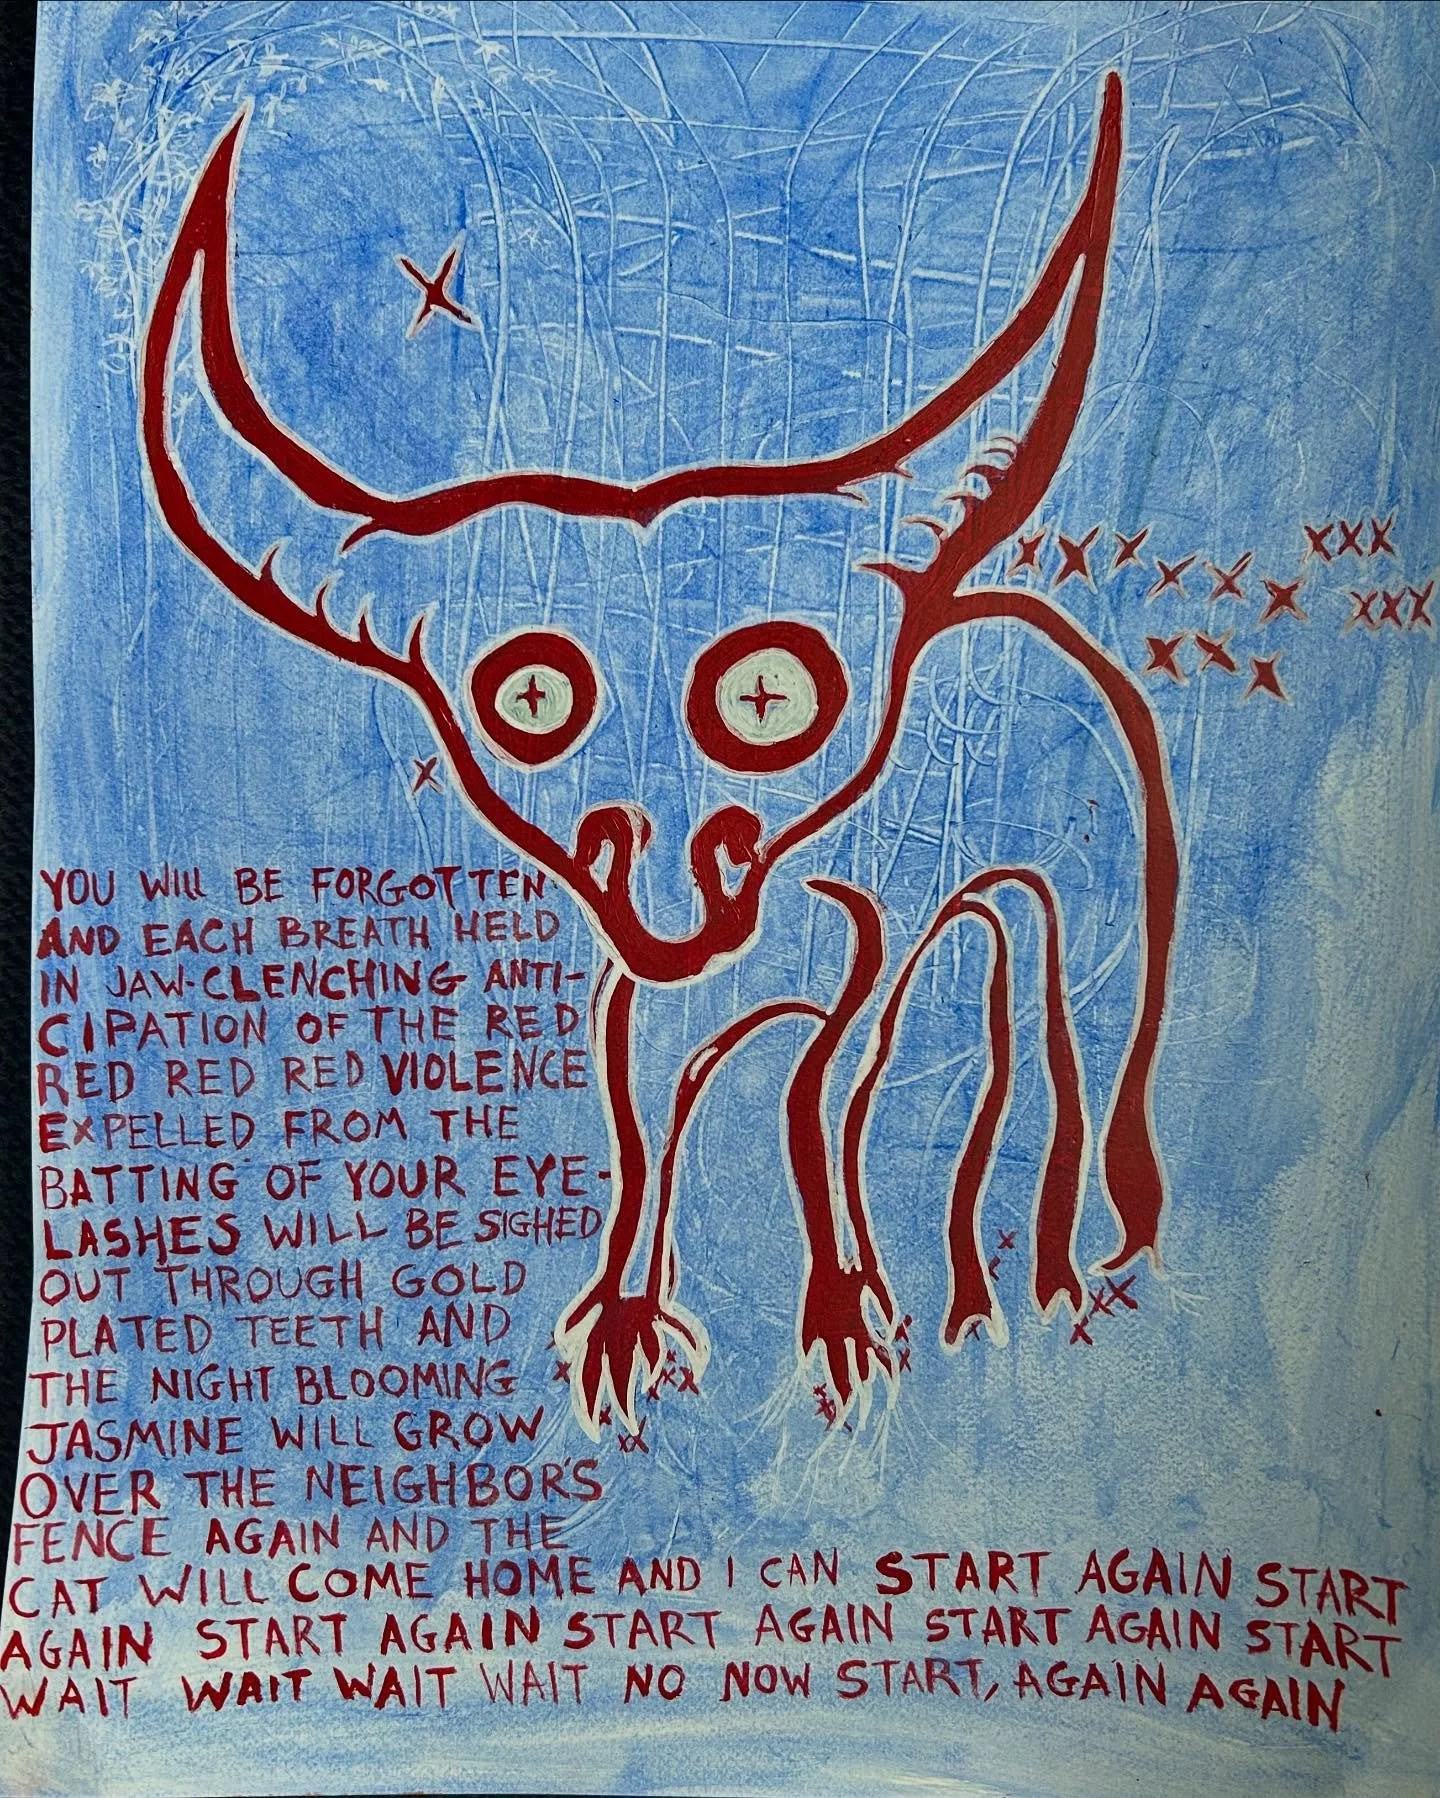 YOU WILL BE FORGOTTEN
AND EACH BREATH HELD
IN JAW-CLENCHING ANTI-
CIPATION OF THE RED
RED RED RED VIOLENCE
EXPELLED FROM THE
BATTING OF YOUR EYE-
LASHES WILL BE SIGHED
OUT THROUGH GOLD
PLATED TEETH AND
THE NIGHT BLOOMING
JASMINE WILL GROW
OVER THE NEIGHBOR'S
FENCE AGAIN AND THE
CAT WILL COME HOME AND I CAN START AGAIN START
AGAIN START AGAIN START AGAIN START AGAIN START
WAIT WAIT WAIT WAIT NO NOW START, AGAIN AGAIN